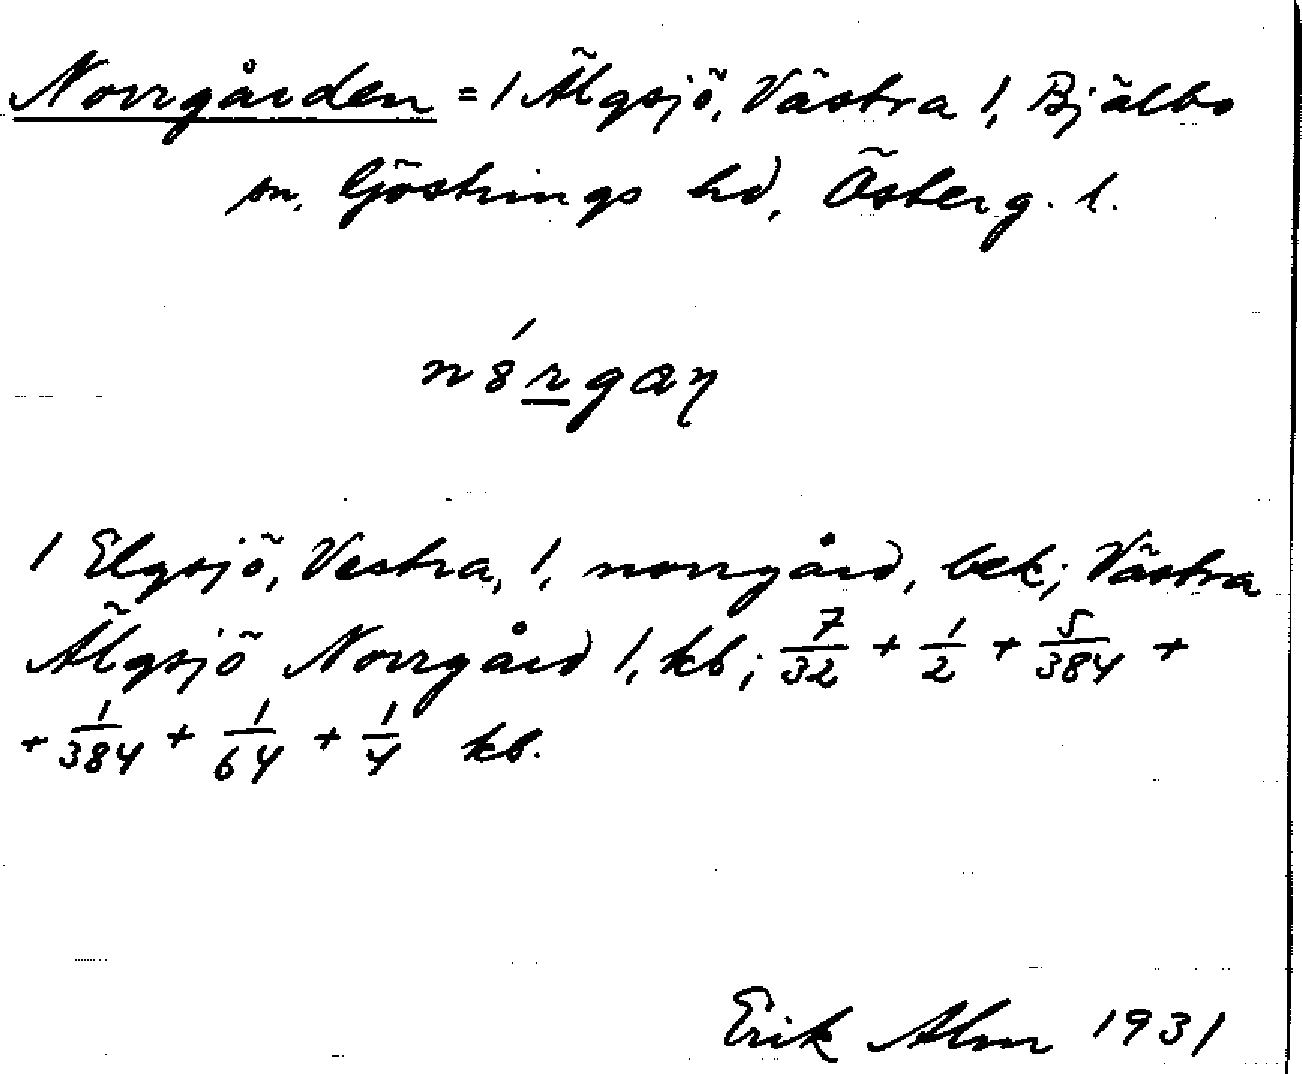 Norrgården = 1 Älgsjö, Västra 1, Bjälbo
sn, Göstrings hd, Österg. l.
1 Elgsjö, Vestra, 1, norrgård, bek; Västra
Älgsjö Norrgård 1, kb; 7/32 + 1/2 + 5/384 +
+ 1/384 + 1/64 + 1/4 kb.
Erik Alm 1931